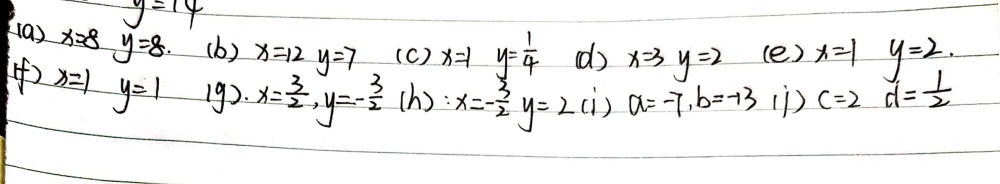 y=14
(a) x=8 y=8. (b) x=12 y=7 (c) x=1 y=1/4 (d) x=3 y=2 (e) x=1 y=2.
(f) x=1 y=1 (g). x=3/2, y=-3/2 (h): x=-3/2 y=2 (i) a=-7, b=-13 (j) c=2 d=1/2